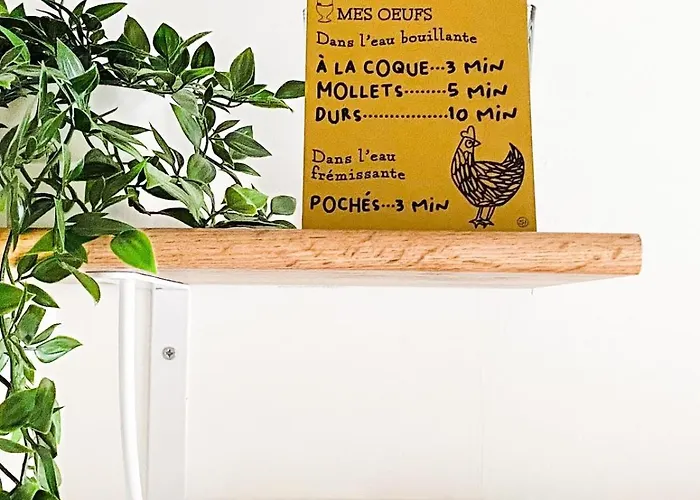 MES OEUFS
Dans l'eau bouillante
À LA COQUE...3 MIN
MOLLETS........5 MIN
DURS.................10 MIN
Dans l'eau
frémissante
POCHÉS...3 MIN